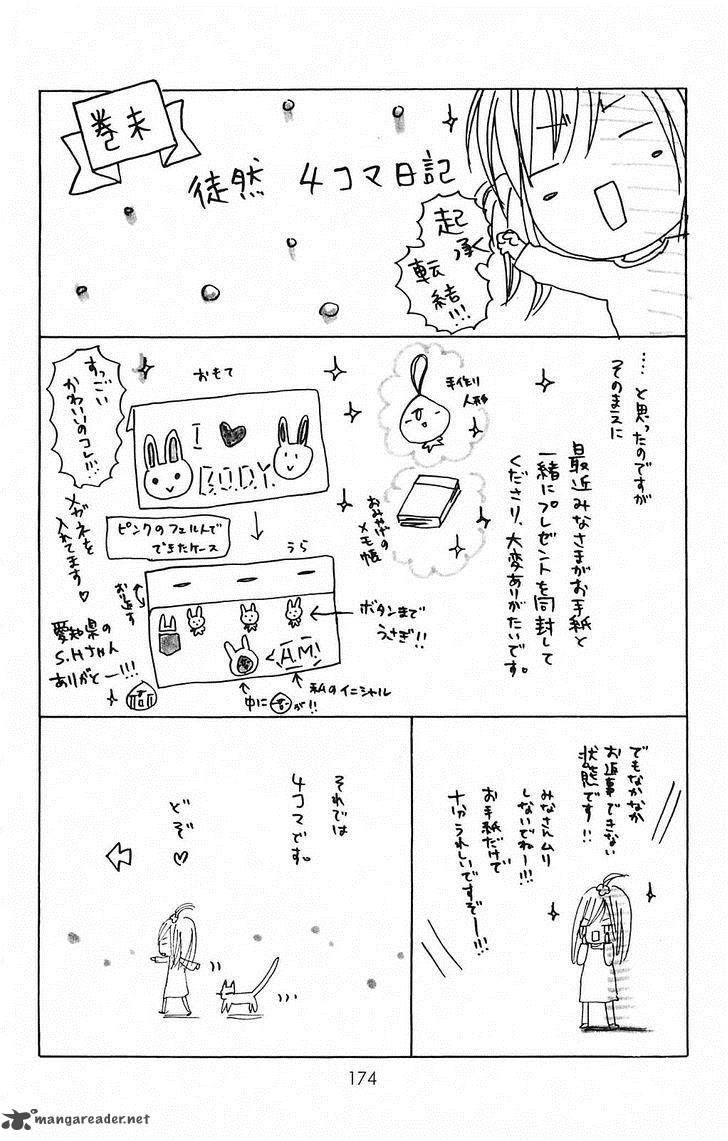 巻末
徒然 4コマ日記
起
承
転
結!!!
‥‥と思ったのですが
そのまえに
最近みなさまがお手紙と
一緒にプレゼントを同封して
くださり、大変ありがたいです。
手作り
人形
おみやげの
メモ帳
おもて
I ♥
B.O.D.Y.
すっごい
かわいいのコレ!!!
ピンクのフェルトで
できたケース
メガネを
入れてます♡
うら
お返す
ボタンまで
うさぎ!!
A.M!
私のイニシャル
中に
が!!
愛知県の
S.Hさん
ありがとー!!!
でもなかなか
お返事できない
状態です!!
みなさんムリ
しないでねー!!!
お手紙だけで
十分うれしいですぞー!!!
それでは
4コマです。
どぞ♡
174
mangareader.net